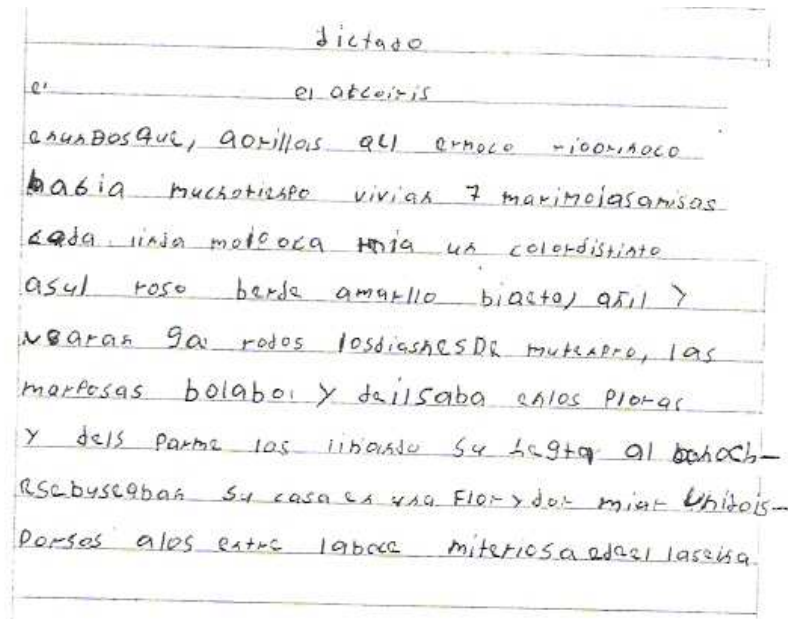 dictado
el alcoiris
enunBosque, aorillas all ernoco rioorinoco
habia muchotienpo vivian 7 marimolasamisas
cada linda molooca tnia un colordistinto
asul roso berde amarllo biaeto, añil y
losdiasnesDe mutenpro, las
marposas bolaboi y dailsaba enlos Ploras
y dels Parme las linando su hasta al banoch-
esebuscaban su casa en una Flor y dor miar unidois-
Porsos alos entre labace miteriosa adeel laseisa